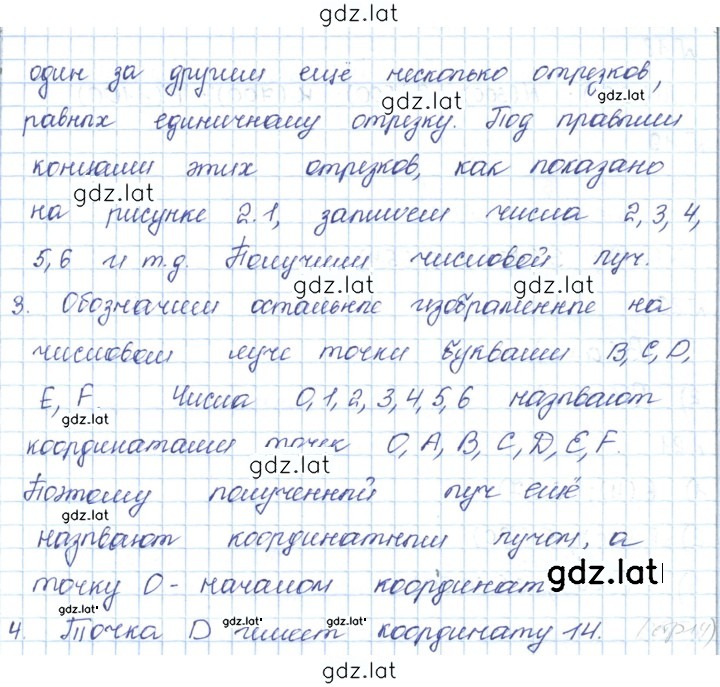 gdz.lat
один за другим ещё несколько отрезков,
gdz.lat gdz.lat
равных единичному отрезку. Под правыми
концами этих отрезков, как показано
gdz.lat
на рисунке 2.1, запишем числа 2, 3, 4,
5, 6 и т.д. Получим числовой луч.
gdz.lat gdz.lat
3. Обозначим остальные изображенные на
числовом луче точки буквами B, C, D,
E, F. Числа 0, 1, 2, 3, 4, 5, 6 называют
gdz.lat
координатами точек O, A, B, C, D, E, F.
gdz.lat
Поэтому полученный луч ещё
gdz.lat
называют координатным лучом, а
точку O - началом координат
gdz.lat
gdz.lat gdz.lat
4. Точка D имеет координату 14.
gdz.lat